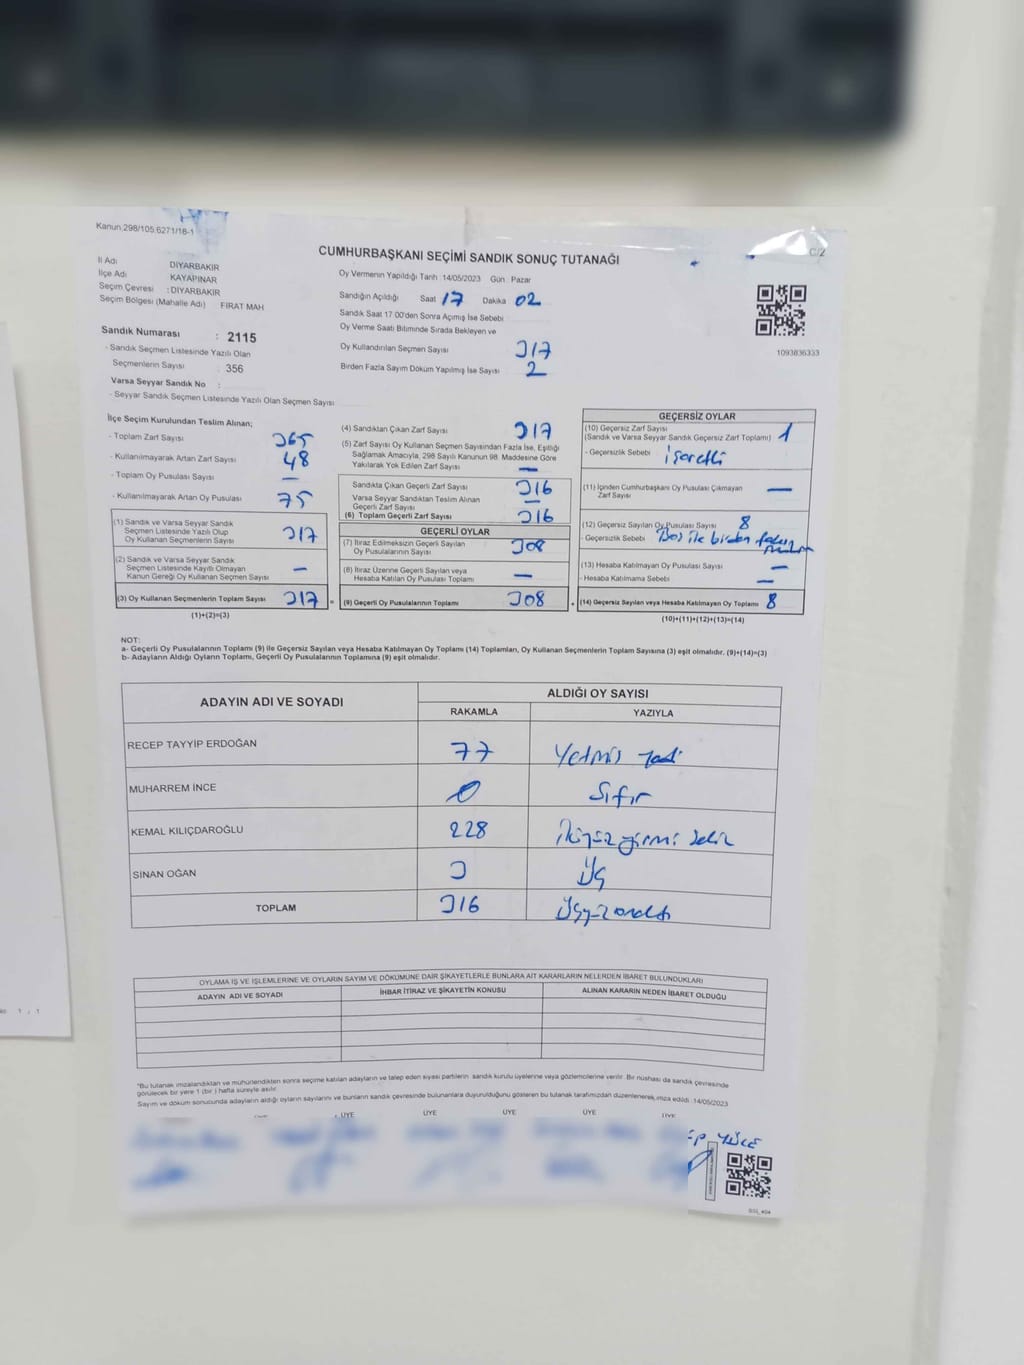 Kanun.298/105.6271/18-1
C/2
CUMHURBAŞKANI SEÇİMİ SANDIK SONUÇ TUTANAĞI
İl Adı DİYARBAKIR
İlçe Adı KAYAPINAR
Seçim Çevresi : DİYARBAKIR
Seçim Bölgesi (Mahalle Adı) FIRAT MAH
Sandık Numarası : 2115
- Sandık Seçmen Listesinde Yazılı Olan
Seçmenlerin Sayısı : 356
Varsa Seyyar Sandık No :
- Seyyar Sandık Seçmen Listesinde Yazılı Olan Seçmen Sayısı
Oy Vermenin Yapıldığı Tarih :14/05/2023 Gün : Pazar
Sandığın Açıldığı Saat 17 Dakika 02
Sandık Saat 17 00'den Sonra Açmış İse Sebebi
Oy Verme Saati Bitiminde Sırada Bekleyen ve
Oy Kullandırılan Seçmen Sayısı 317
Birden Fazla Sayım Döküm Yapılmış İse Sayısı 2
1093836333
İlçe Seçim Kurulundan Teslim Alınan;
- Toplam Zarf Sayısı 365
- Kullanılmayarak Artan Zarf Sayısı 48
- Toplam Oy Pusulası Sayısı —
- Kullanılmayarak Artan Oy Pusulası 75
(1) Sandık ve Varsa Seyyar Sandık
Seçmen Listesinde Yazılı Olup
Oy Kullanan Seçmenlerin Sayısı 317
(2) Sandık ve Varsa Seyyar Sandık
Seçmen Listesinde Kayıtlı Olmayan
Kanun Gereği Oy Kullanan Seçmen Sayısı —
(3) Oy Kullanan Seçmenlerin Toplam Sayısı 317 =
(1)+(2)=(3)
(4) Sandıktan Çıkan Zarf Sayısı 317
(5) Zarf Sayısı Oy Kullanan Seçmen Sayısından Fazla İse, Eşitliği
Sağlamak Amacıyla, 298 Sayılı Kanunun 98. Maddesine Göre
Yakılarak Yok Edilen Zarf Sayısı —
Sandıkta Çıkan Geçerli Zarf Sayısı 316
Varsa Seyyar Sandıktan Teslim Alınan
Geçerli Zarf Sayısı —
(6) Toplam Geçerli Zarf Sayısı 316
GEÇERLİ OYLAR
(7) İtiraz Edilmeksizin Geçerli Sayılan
Oy Pusulalarının Sayısı 308
(8) İtiraz Üzerine Geçerli Sayılan veya
Hesaba Katılan Oy Pusulası Toplamı —
(9) Geçerli Oy Pusulalarının Toplamı 308 +
GEÇERSİZ OYLAR
(10) Geçersiz Zarf Sayısı 1
(Sandık ve Varsa Seyyar Sandık Geçersiz Zarf Toplamı)
- Geçersizlik Sebebi işaretli
(11) İçinden Cumhurbaşkanı Oy Pusulası Çıkmayan
Zarf Sayısı —
(12) Geçersiz Sayılan Oy Pusulası Sayısı 8
- Geçersizlik Sebebi Boş ile birden fazla
(13) Hesaba Katılmayan Oy Pusulası Sayısı —
- Hesaba Katılmama Sebebi —
(14) Geçersiz Sayılan veya Hesaba Katılmayan Oy Toplamı 8
(10)+(11)+(12)+(13)=(14)
NOT:
a- Geçerli Oy Pusulalarının Toplamı (9) ile Geçersiz Sayılan veya Hesaba Katılmayan Oy Toplamı (14) Toplamları, Oy Kullanan Seçmenlerin Toplam Sayısına (3) eşit olmalıdır. (9)+(14)=(3)
b- Adayların Aldığı Oyların Toplamı, Geçerli Oy Pusulalarının Toplamına (9) eşit olmalıdır.
ADAYIN ADI VE SOYADI ALDIĞI OY SAYISI
RAKAMLA YAZIYLA
RECEP TAYYİP ERDOĞAN 77 Yetmiş Yedi
MUHARREM İNCE 0 Sıfır
KEMAL KILIÇDAROĞLU 228 İkiyüz yirmi sekiz
SİNAN OĞAN 3 Üç
TOPLAM 316 Üçyüz onaltı
OYLAMA İŞ VE İŞLEMLERİNE VE OYLARIN SAYIM VE DÖKÜMÜNE DAİR ŞİKAYETLERLE BUNLARA AİT KARARLARIN NELERDEN İBARET BULUNDUKLARI
ADAYIN ADI VE SOYADI İHBAR İTİRAZ VE ŞİKAYETİN KONUSU ALINAN KARARIN NEDEN İBARET OLDUĞU
"Bu tutanak imzalandıktan ve mühürlendikten sonra seçime katılan adayların ve talep eden siyasi partilerin sandık kurulu üyelerine veya gözlemcilerine verilir. Bir nüshası da sandık çevresinde
görülecek bir yere 1 (bir) hafta süreyle asılır.
Sayım ve döküm sonucunda adayların aldığı oyların sayılarını ve bunların sandık çevresinde bulunanlara duyurulduğunu gösteren bu tutanak tarafımızdan düzenlenerek imza edildi .14/05/2023
ÜYE ÜYE ÜYE ÜYE ÜYE
YÜCE
1 / 1